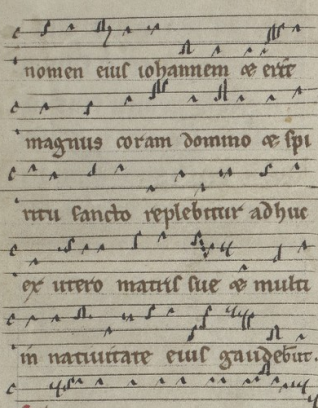 nomen eius iohannem & erit
magnus coram domino & spi
ritu sancto replebitur adhuc
ex utero matris sue & multi
in nativitate eius gaudebunt.